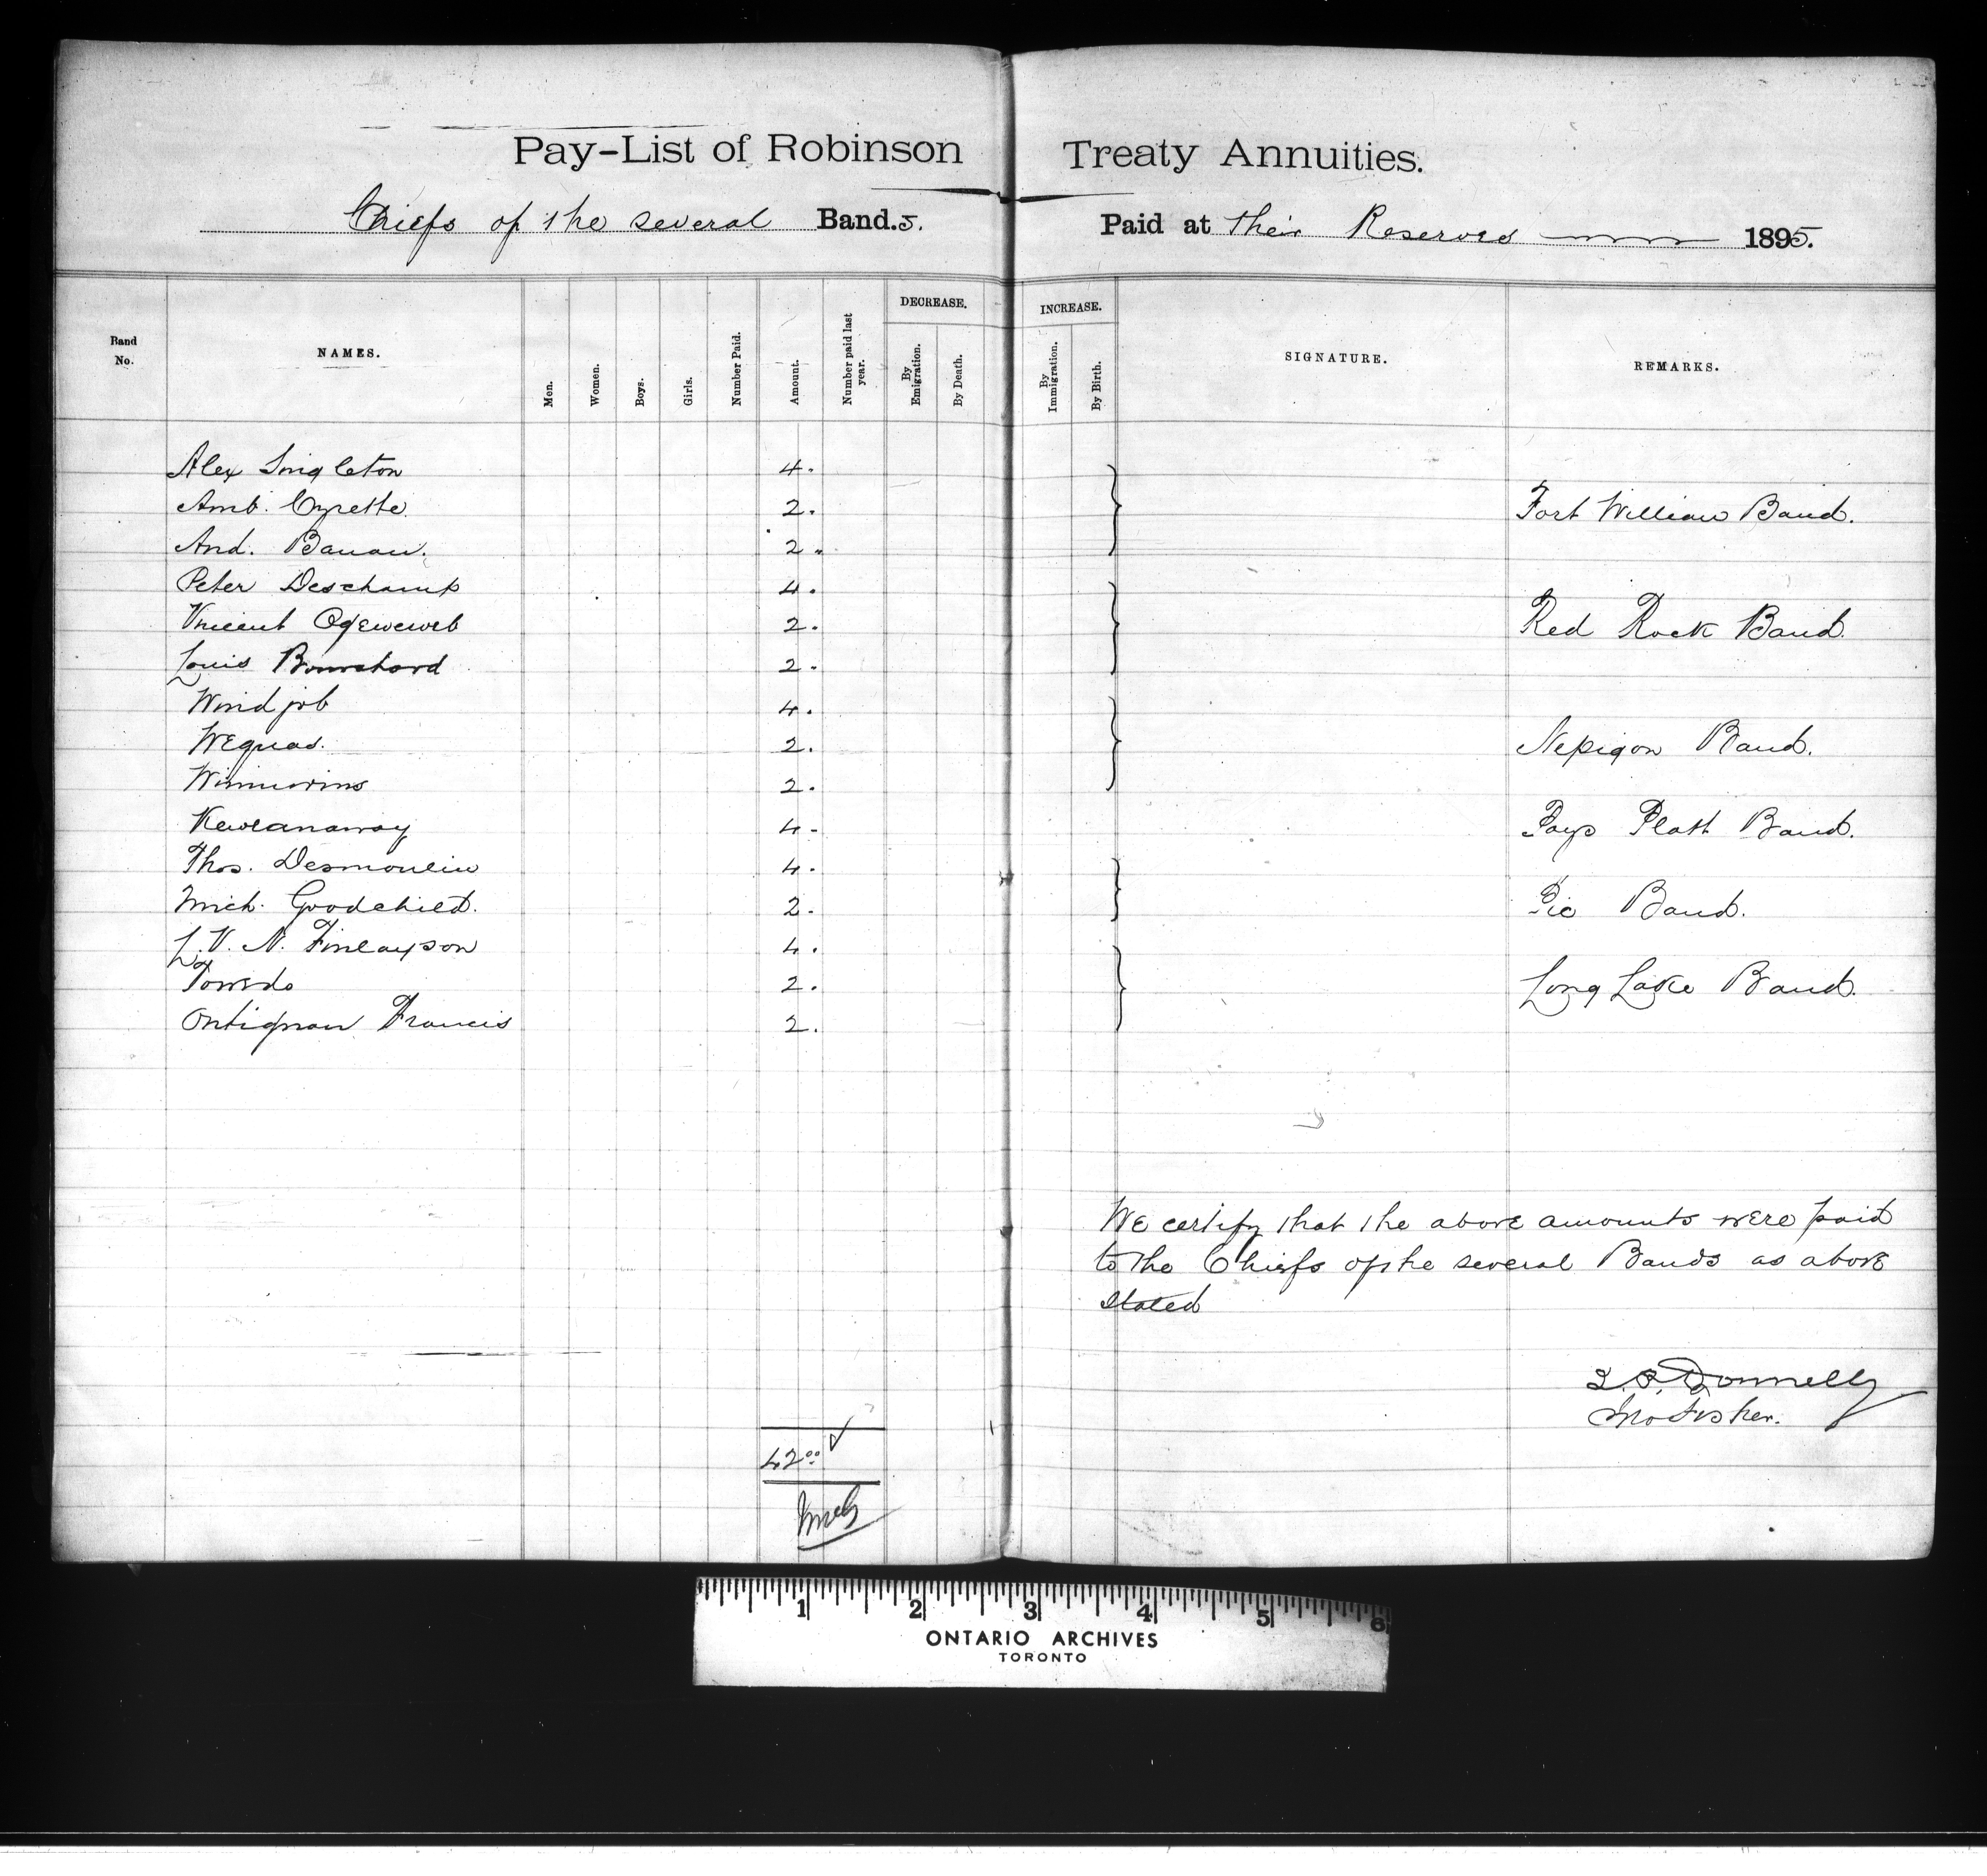 Pay-List of Robinson Treaty Annuities.
Chiefs of the several Band.s. Paid at their Reserves 1895.
Band No. NAMES. Men. Women. Boys. Girls. Number Paid. Amount. Number paid last year. DECREASE. By Emigration. By Death. INCREASE. By Immigration. By Birth. SIGNATURE. REMARKS.
Alex Singleton 4.
Amb. Cyrette 2. Fort William Band.
And. Banan. 2.
Peter Deschamp 4.
Vincent Ogeweweb 2. Red Rock Band.
Louis Bouchard 2.
Windjob 4.
Wequas. 2. Nepigon Band.
2.
Keweanaway 4. Pays Platt Band.
Thos. Desmoulin 4.
Mich. Goodchild. 2. Pic Band.
L. V. N. Finlayson 4.
Towedo 2. Long Lake Band.
Ontignan Francis 2.
We certify that the above amounts were paid
to the Chiefs of the several Bands as above
stated
Donnelly
Jno Fisher.
42.00
1 2 3 4 5 6
ONTARIO ARCHIVES
TORONTO